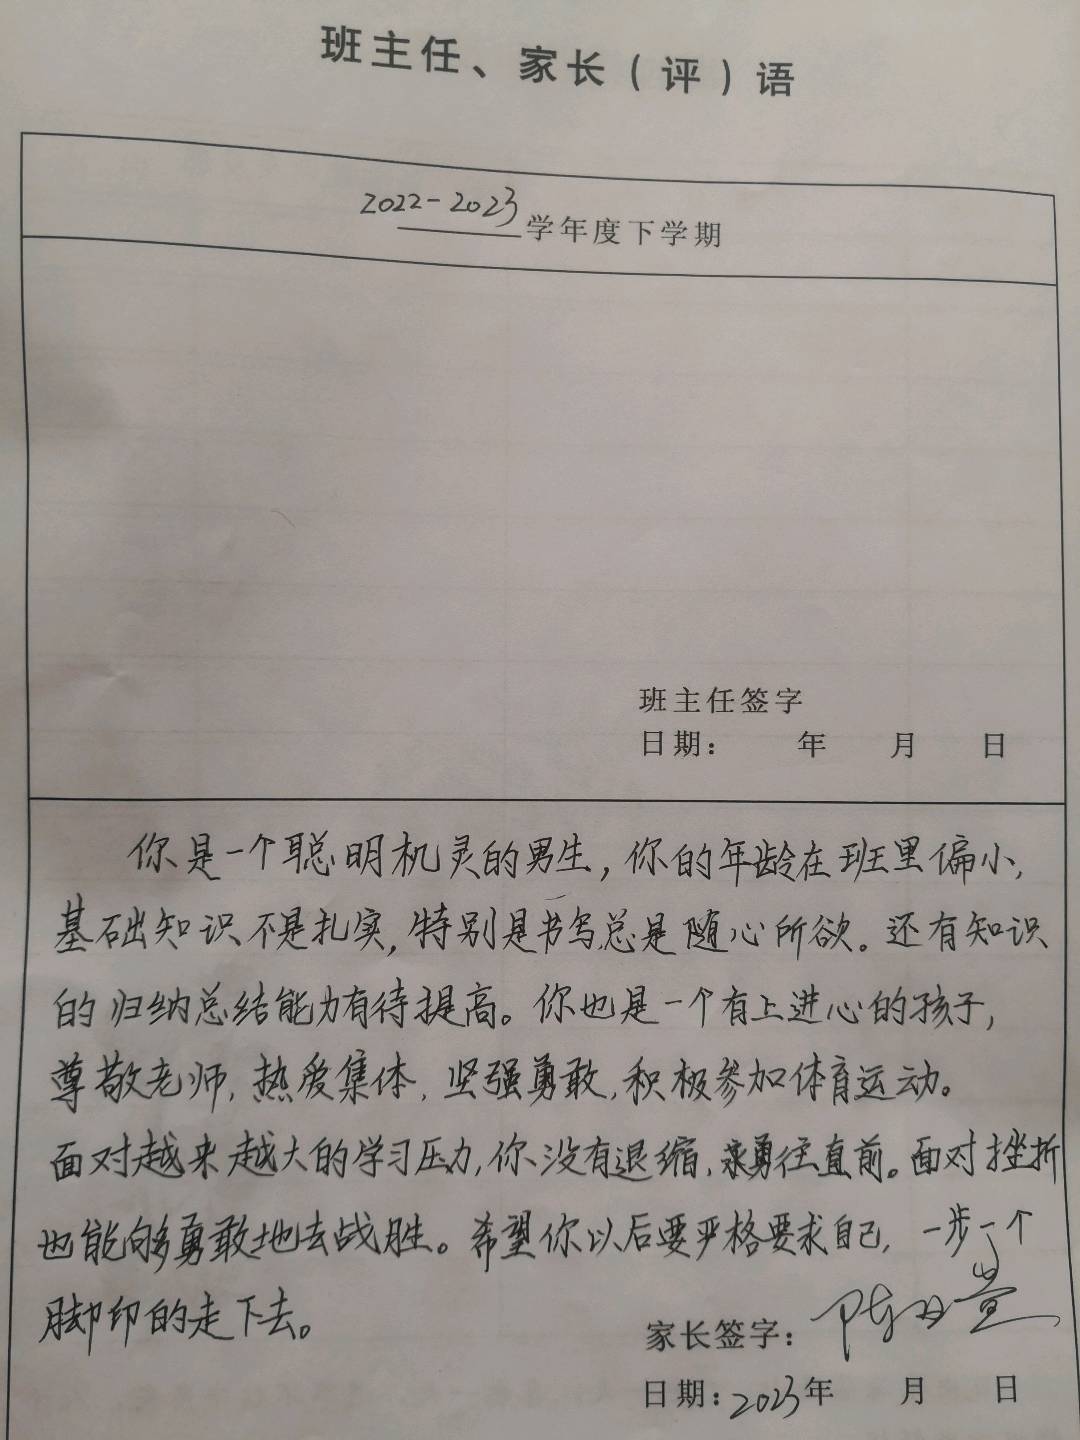 班主任、家长（评）语
2022-2023学年度下学期
班主任签字
日期： 年 月 日
你是一个聪明机灵的男生，你的年龄在班里偏小，
基础知识不是扎实，特别是书写总是随心所欲。还有知识
的归纳总结能力有待提高。你也是一个有上进心的孩子，
尊敬老师，热爱集体，坚强勇敢，积极参加体育运动。
面对越来越大的学习压力，你没有退缩，勇往直前。面对挫折
也能够勇敢地去战胜。希望你以后要严格要求自己，一步一个
脚印的走下去。
家长签字：
日期：2023年 月 日